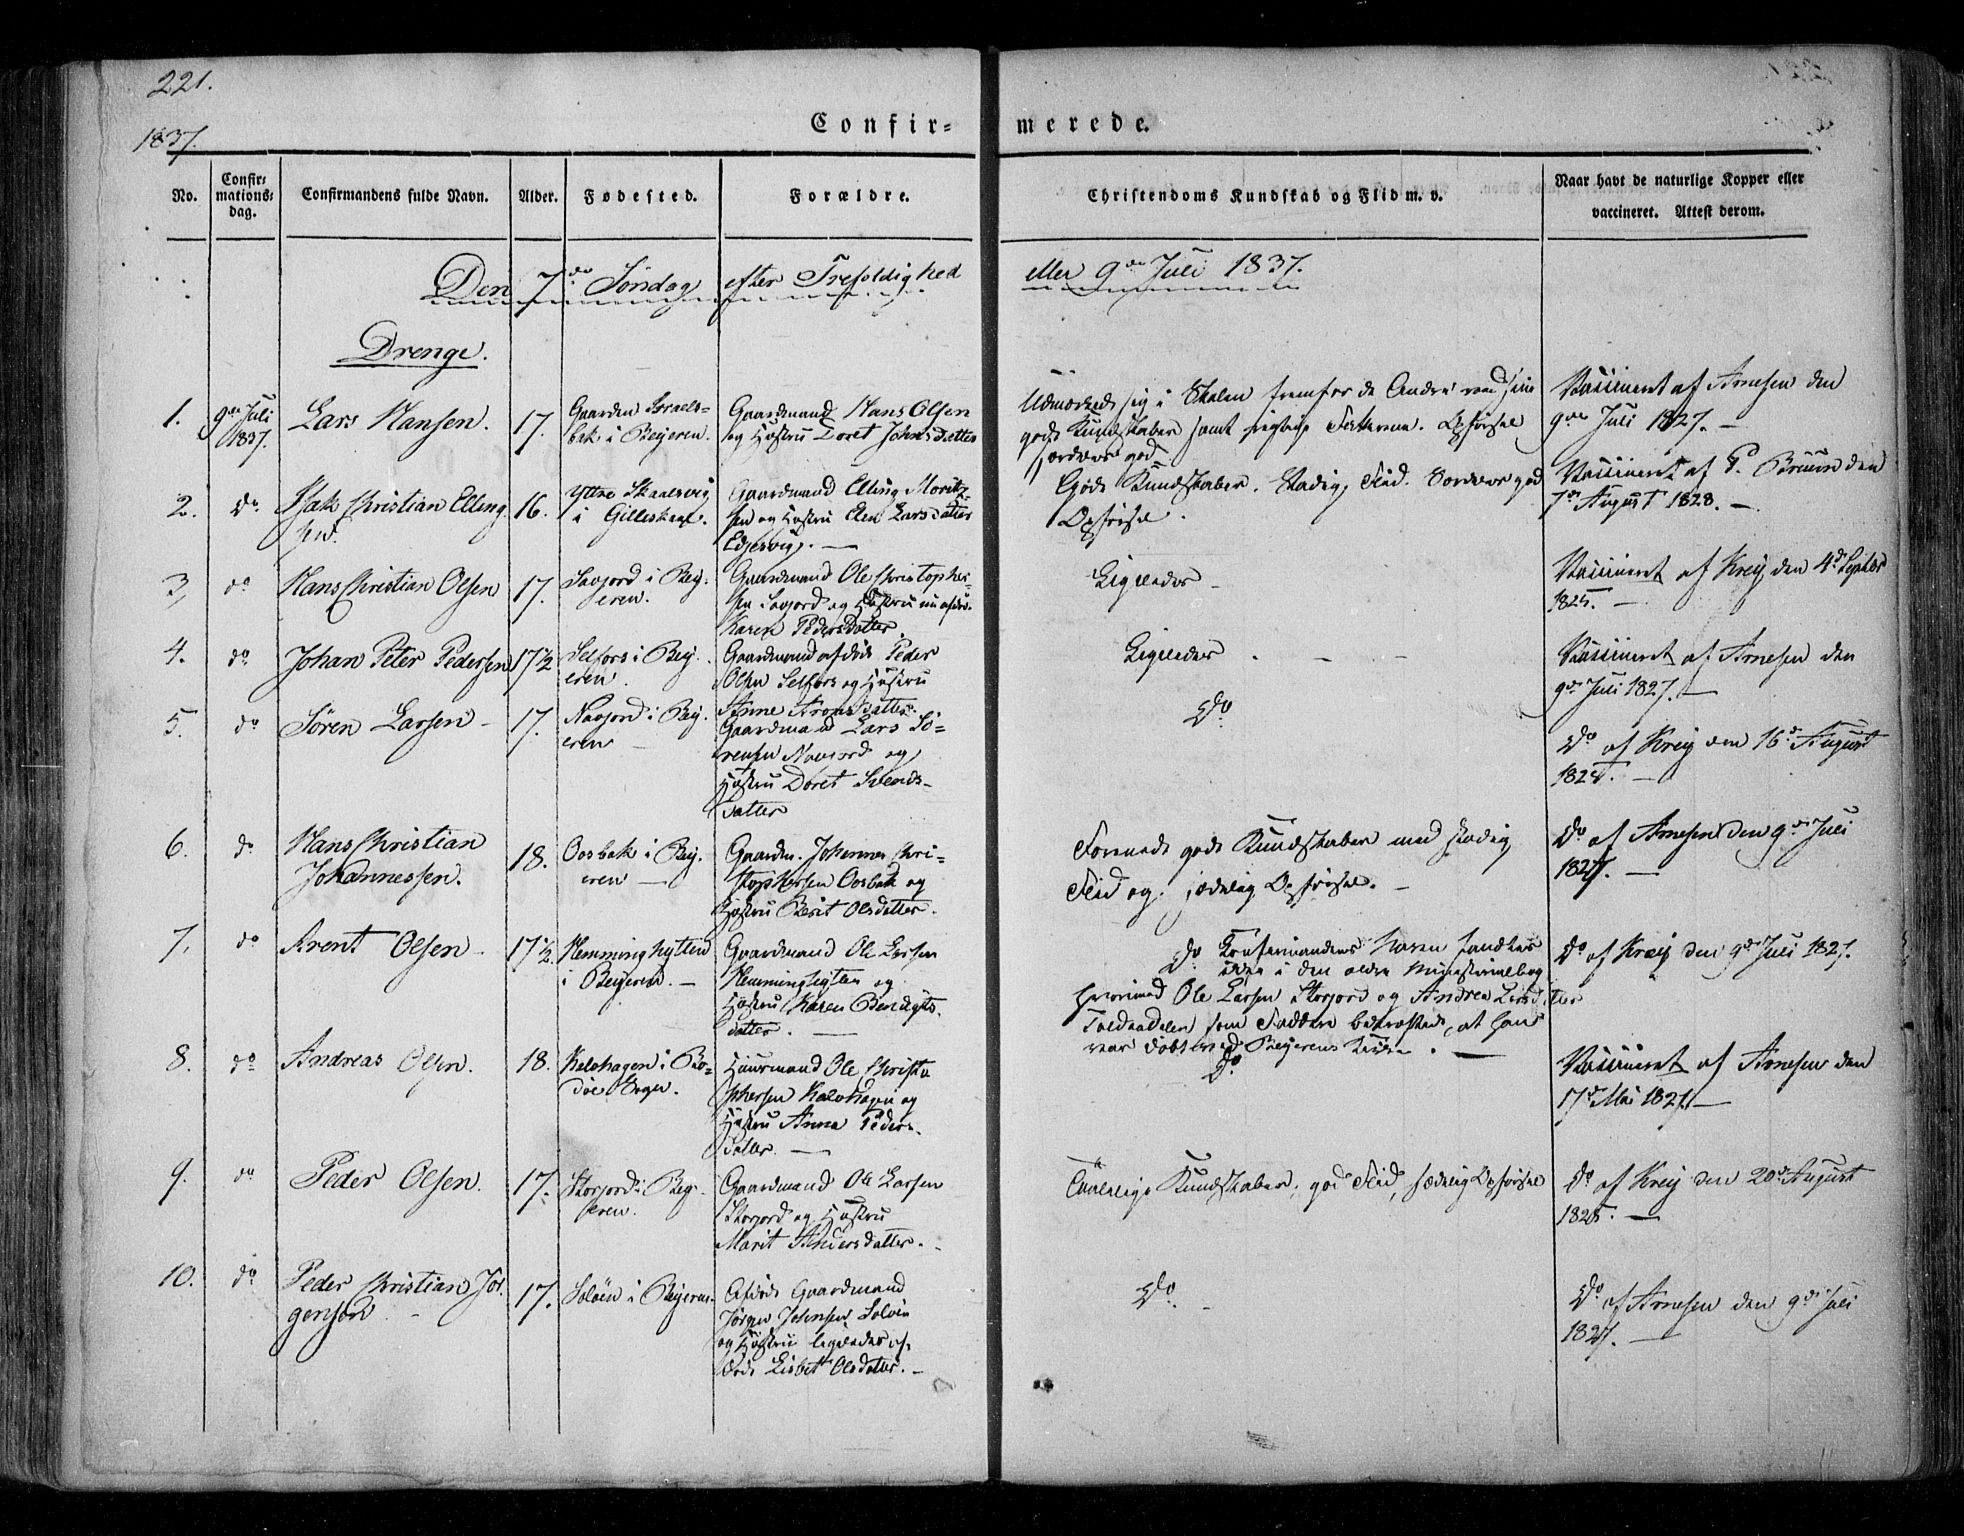 221.
1837.
Confir-
merede.
No.
Confir-
mations-
dag.
Confirmandens fulde Navn.
Alder.
Fødested.
Forældre.
Christendoms Kundskab og Flid m. v.
Naar havt de naturlige Kopper eller
vaccineret. Attest derom.
Den 7de Søndag efter Trefoldighed eller 9de Juli 1837.
Drenge.
1.
9de Juli
1837.
Lars Hansen.
17.
Gaarden Israels-
bak i Beyeren.
Gaardmand Hans Olsen
og Hustru Doret Johnsdatter
Udmærkede sig i Skolen fremfor de Andre ved sine
gode Kundskaber samt Opførsel
god
Vaccineret af Arnesen den
9de Juli 1827. —
2.
do
Christian Elling-
sen.
16.
Yttre Skaalsvig
i Gilleskaal.
Gaardmand Elling Moritz-
sen og Hustru Elen Larsdatter
Gode Kundskaber. Stadig Flid. Særdeles god
Opførsel.
Vaccineret af P. Bruun den
7de August 1828. —
3,
do
Hans Christian Olsen
17.
Savjord i Bey-
eren.
Gaardmand Ole Christopher-
sen Savjord og Hustru nu afdøde
Karen Pedersdatter
Ligeledes —
Vaccineret af Krey den 4de Septbr
1825. —
4.
do
Johan Peter Pedersen
17 1/2
Selfors i Bey-
eren.
Gaardmand afdøde Peder
Olsen Selfors og Hustru
Anne Aronsdatter.
Ligeledes . — —
Vaccineret af Arnesen den
9de Juli 1827. —
5.
do
Sören Larsen —
17.
Navjord i Bey-
eren —
Gaardmand Lars Sö-
rensen Navjord og
Hustru Doret Svends-
datter
Do
Do af Krey den 16de August
1825. —
6.
do
Hans Christian
Johannessen.
18.
Oosbak i Bey-
eren —
Gaardm. Johannes Chri-
stophersen Oosbak og
Hustru Berit Olsdatter.
Forenede gode Kundskaber med stadig
Flid og sædelig Opførsel. —
Do af Arnesen den 9de Juli
1827. —
7.
do
Arent Olsen —
17 1/2.
Hemminghytten
i Beyeren. —
Gaardmand Ole Larsen
Hemminghytten og
Hustru Karen Bendigts-
datter. —
Do Confirmandens Navn fandtes
ikke i den ældre Ministerialbog
hvorimod Ole Larsen Storjord og Andrea Larsdatter
Toldaadalen som Faddere bekræftede, at han
var døbt ved Beyerens Kirke. —
Do af Krey den 9de Juli 1827.
8.
do
Andreas Olsen
18.
Kalvhagen i Bo-
døe Sogn.
Huusmand Ole Christo
phersen Kalvhagen og
Hustru Anna Peders-
datter. —
Do
Vaccineret af Arnesen den
17de Mai 1821. —
9.
do
Peder Olsen.
17.
Storjord i Bey-
eren.
Gaardmand Ole Larsen
Storjord og Hustru
Marit Andersdatter. —
Taalelige Kundskaber, god Flid, sædelig Opførsel
Do af Krey den 20de August
1825. —
10.
do
Peder Christian Jör-
gensen —
17.
Soløen i Beyeren.
Afdøde Gaardmand
Jørgen Johnsen Soløen
og Hustru ligeledes af-
døde Lisbet Olsdatter. —
Do. —
Do af Arnesen den 9de Juli
1827. —